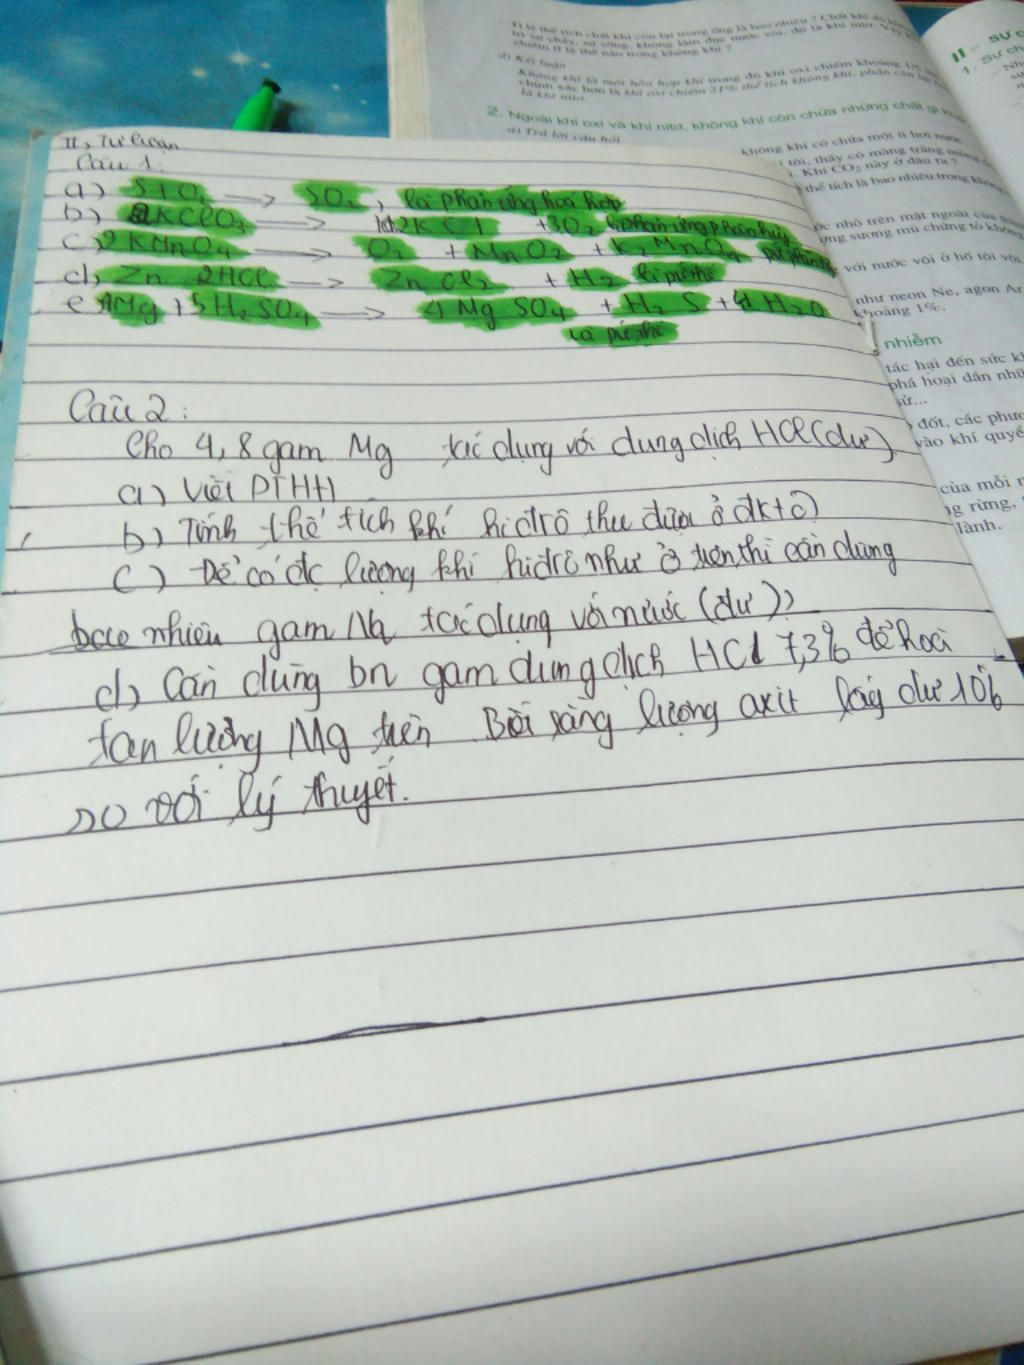 Tỉ lệ thể tích chất khí còn lại trong ống là bao nhiêu ? Chất khí đó không
trì sự cháy, sự sống, không làm đục nước vôi, đó là khí nitơ.
chiếm tỉ lệ thế nào trong không khí ?
d) Kết luận
Không khí là một hỗn hợp khí trong đó khí oxi chiếm khoảng 1/5
chính xác hơn là khí oxi chiếm 21% thể tích không khí, phần còn lại
là khí nitơ.
2. Ngoài khí oxi và khí nitơ, không khí còn chứa những chất gì
a) Trả lời câu hỏi
không khí có chứa một ít hơi nước
tôi, thấy có màng trắng
Khí CO2 này ở đâu ra ?
thể tích là bao nhiêu trong không
nhỏ trên mặt ngoài của
sương mù chứng tỏ không
với nước vôi ở hố tôi vôi
như neon Ne, agon Ar
khoảng 1%.
nhiễm
tác hại đến sức
phá hoại dần
đốt, các
vào khí
của mỗi
rừng,
lành.
II - SỰ
1. Sự
II, Tự luận
Câu 1:
a) S+O2 → SO2, là phản ứng hoá hợp
b) 2KClO3 → 2KCl +3O2 là phản ứng phân hủy
c) 2KMnO4 → O2 + MnO2 + K2MnO4
d) Zn 2HCl → ZnCl2 + H2 là pứ thế
e 4Mg + 5H2SO4 → 4MgSO4 + H2S + 4H2O
là pứ thế
Câu 2:
Cho 4,8 gam Mg tác dụng với dung dịch HCl (dư)
a) Viết PTHH
b) Tính thể tích khí hiđrô thu được ở đktc)
c) Để có đc lượng khí hiđrô như ở trên thì cần dùng
bao nhiêu gam Na tác dụng với nước (dư))
d) Cần dùng bn gam dung dịch HCl 7,3% để hoà
tan lượng Mg trên Bời ràng lượng axit lấy dư 10%
so với lý thuyết.